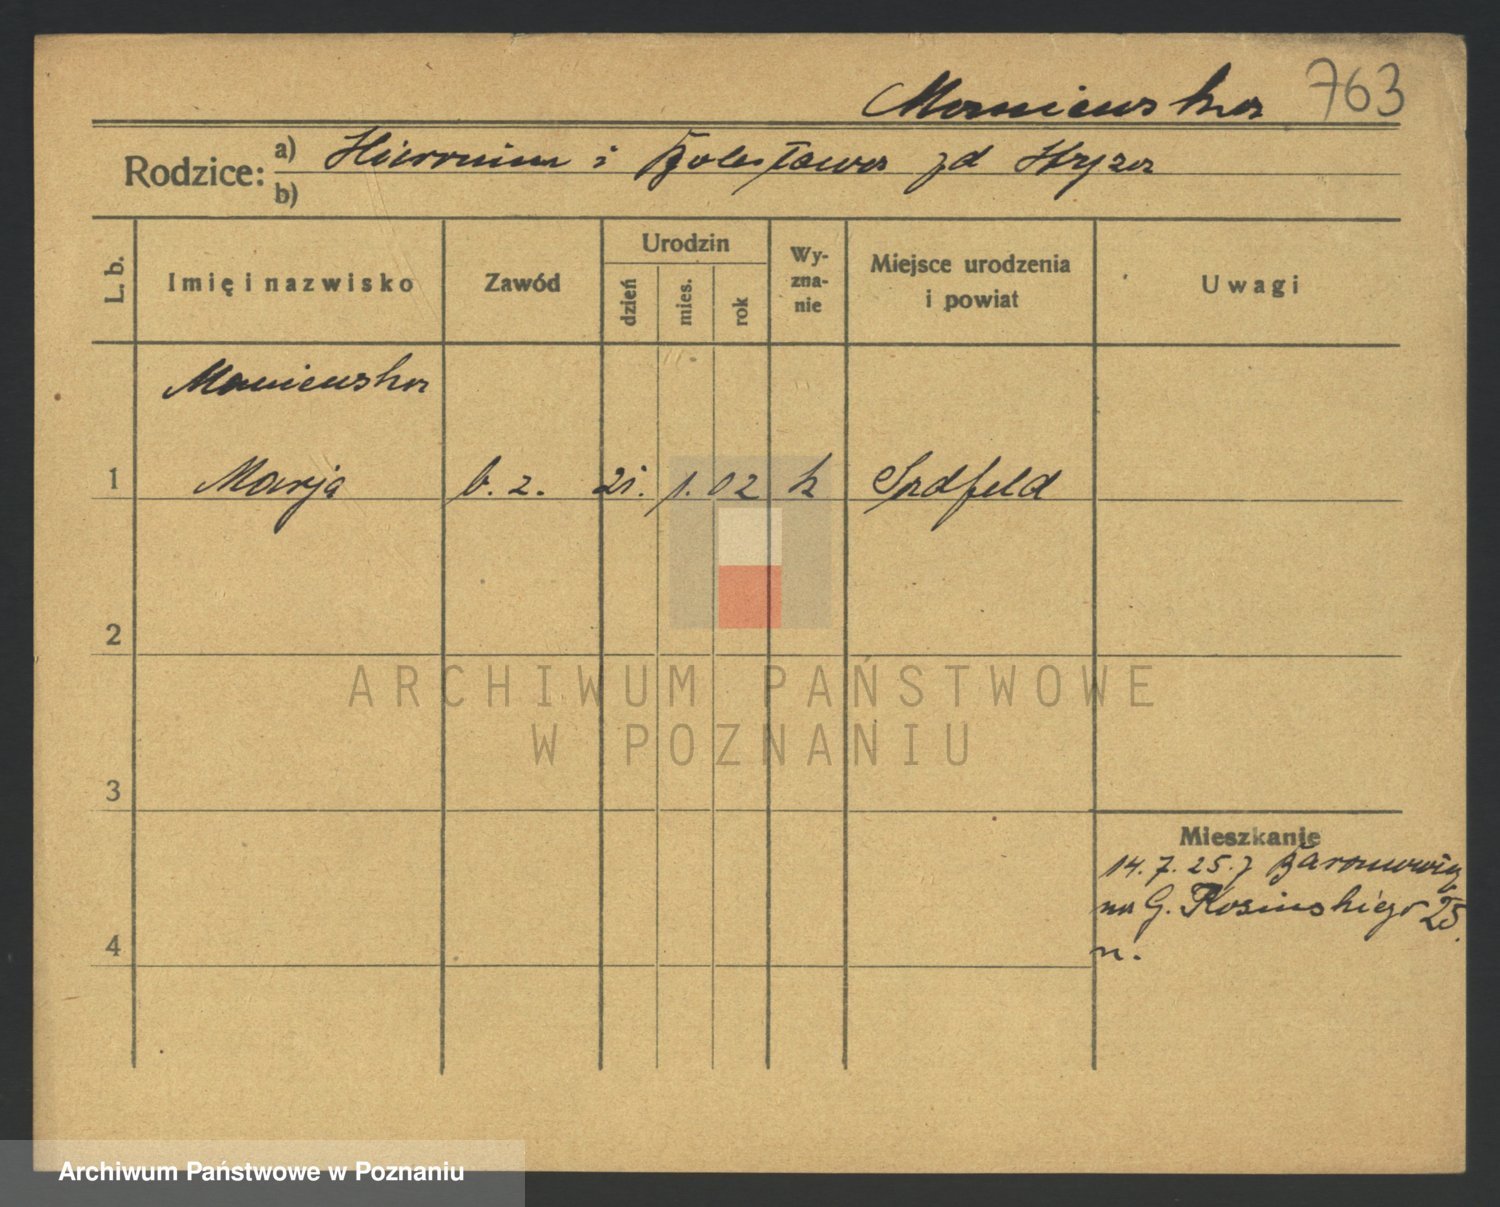 Maniewska 763
Rodzice: a) Hieronim i Bolesława zd Hryza
b)
L. b. Imię i nazwisko Zawód Urodzin dzień mies. rok Wyzna-nie Miejsce urodzenia i powiat Uwagi
Maniewska
1 Marja b. z. 21. 1. 02 k Sadfeld
2
ARCHIWUM PAŃSTWOWE
W POZNANIU
3
Mieszkanie
14. 7. 25. z Baranowicz
na G. Kosińskiego 25
4 n.
Archiwum Państwowe w Poznaniu